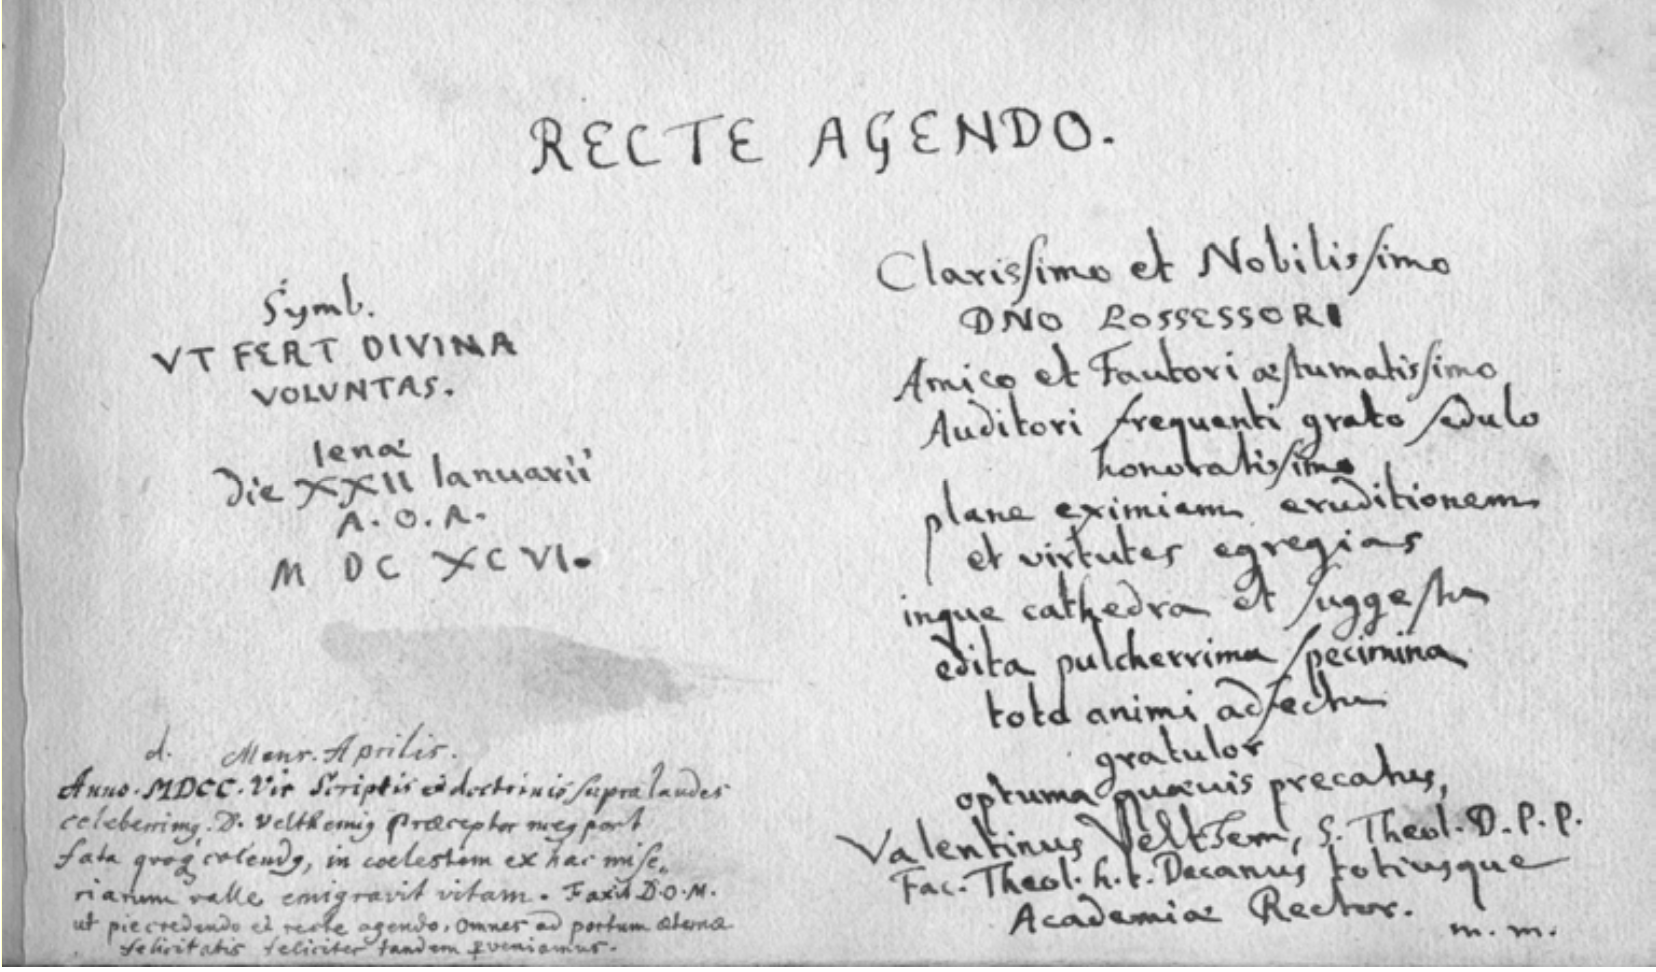 RECTE AGENDO.
Symb.
VT FERT DIVINA
VOLVNTAS.
Ienæ
Die XXII Ianuarii
A. O. R.
M DC XCVI.
d. Mens. Aprilis.
Anno. MDCC. Vir Scriptis et doctrinis supra laudes
celeberrimꝰ. D. Velthemiꝰ Præceptor meꝰ post
fata quoqꝫ colendꝰ, in coelestem ex hac mise„
riarum valle emigravit vitam. Faxit D.O.M.
ut pie credendo et recte agendo, omnes ad portum æternæ
felicitatis feliciter tandem ꝑveniamus.
Clarissimo et Nobilissimo
DNO POSSESSORI
Amico et Fautori æstumatissimo
Auditori frequenti grato sedulo
honoratissimo
plane eximiam eruditionem
et virtutes egregias
inque cathedra et suggestu
edita pulcherrima specimina
toto animi adfectu
gratulor
optuma quævis precatus,
Valentinus Velthem, S. Theol. D. P. P.
Fac. Theol. h. t. Decanus totiusque
Academiæ Rector.
m. m.